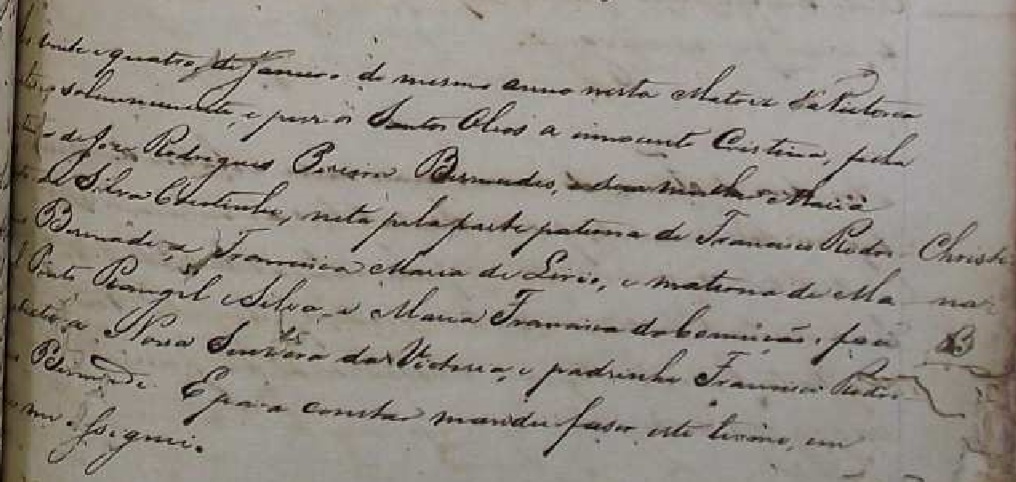 vinte e quatro de Janeiro do mesmo anno nesta Matriz da Victoria
solennemente, e puz os Santos Oleos a innocente Cristina, filha
de Joze Rodrigues Pereira Bermudes, e sua mulher Maria
da Silva Coutinho, neta pela parte paterna de Francisco Rodri
Bermude, e Francisca Maria de Lirio, e materna de Ma
Pinto Rangel e Silva, e Maria Francisca da Conceição, foi
Nossa Senhora da Victoria, e padrinho Francisco Rodri
Bermude. E para constar mandei faser este termo, em
me assignei.
Christi
na
B